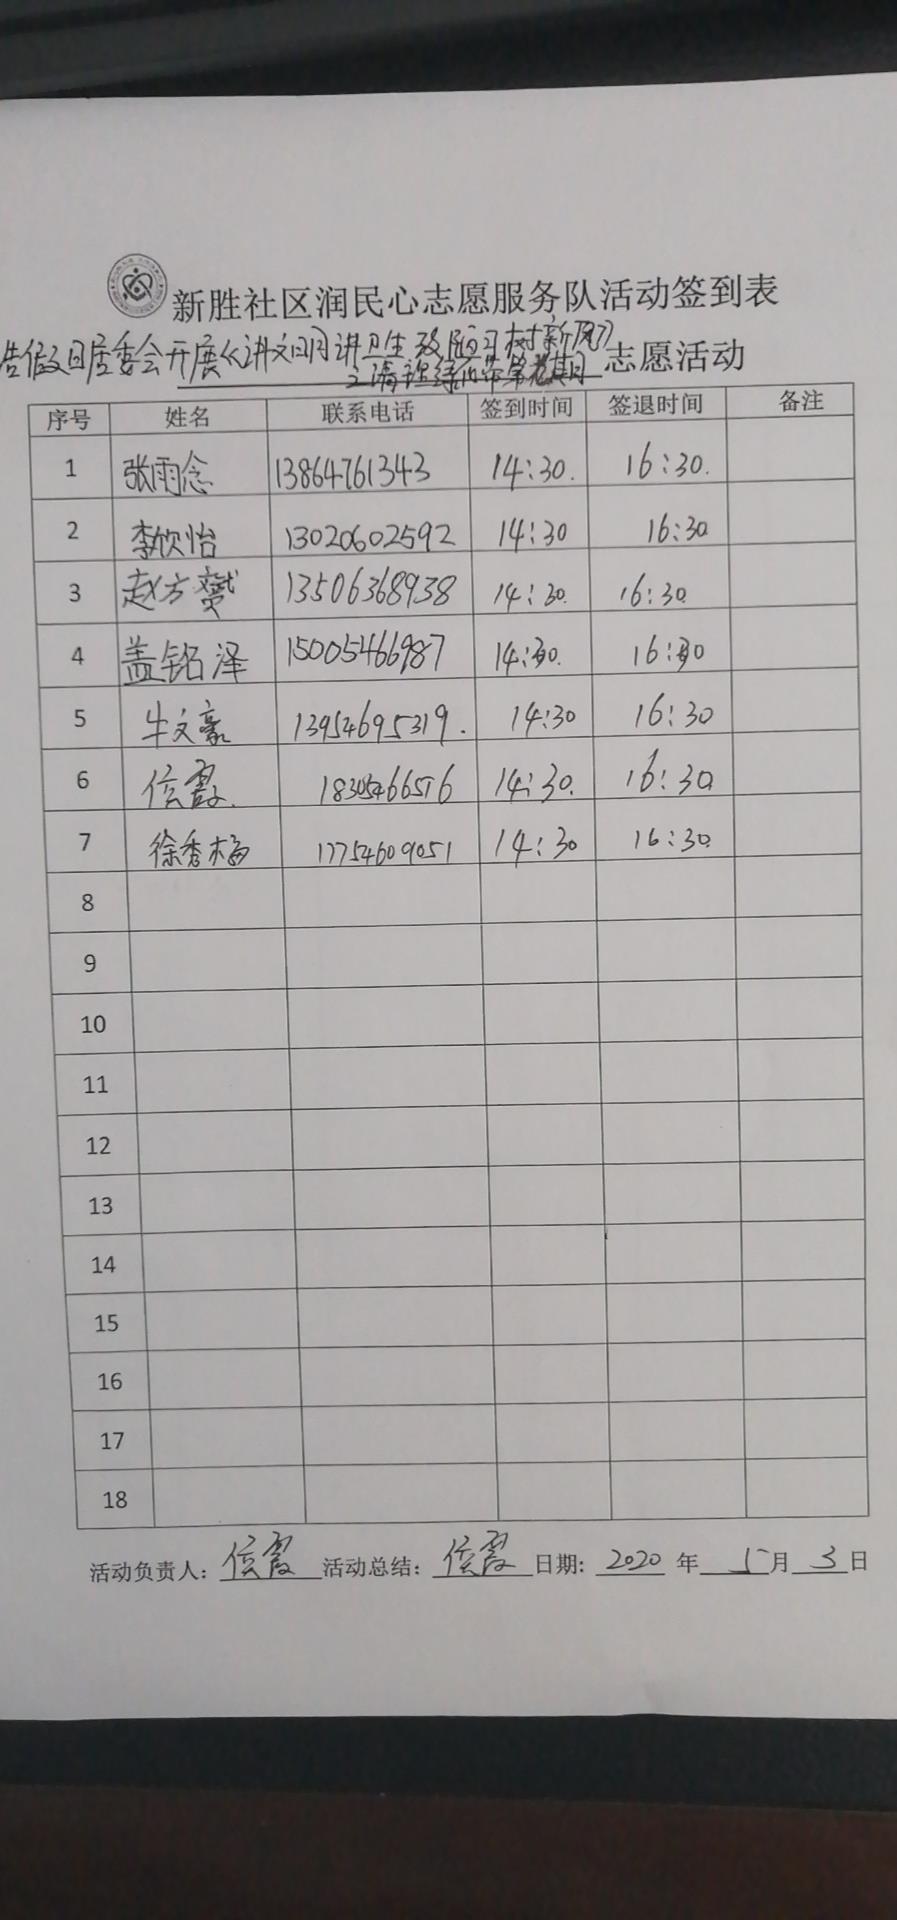 新胜社区润民心志愿服务队活动签到表
假日居委会开展《讲文明讲卫生改陋习树新风》
之清理绿化带第 期 志愿活动
序号 姓名 联系电话 签到时间 签退时间 备注
1 张雨念 13864761343 14:30. 16:30.
2 李欣怡 13020602592 14:30 16:30
3 赵方 13506368938 14:30. 16:30
4 盖铭泽 15005466987 14:30. 16:30
5 牛文豪 13954695319. 14:30 16:30
6 信霞. 18305466516 14:30. 16:30
7 徐秀梅 17754609051 14:30 16:30
8
9
10
11
12
13
14
15
16
17
18
活动负责人: 信霞 活动总结: 信霞 日期: 2020 年 5 月 3 日